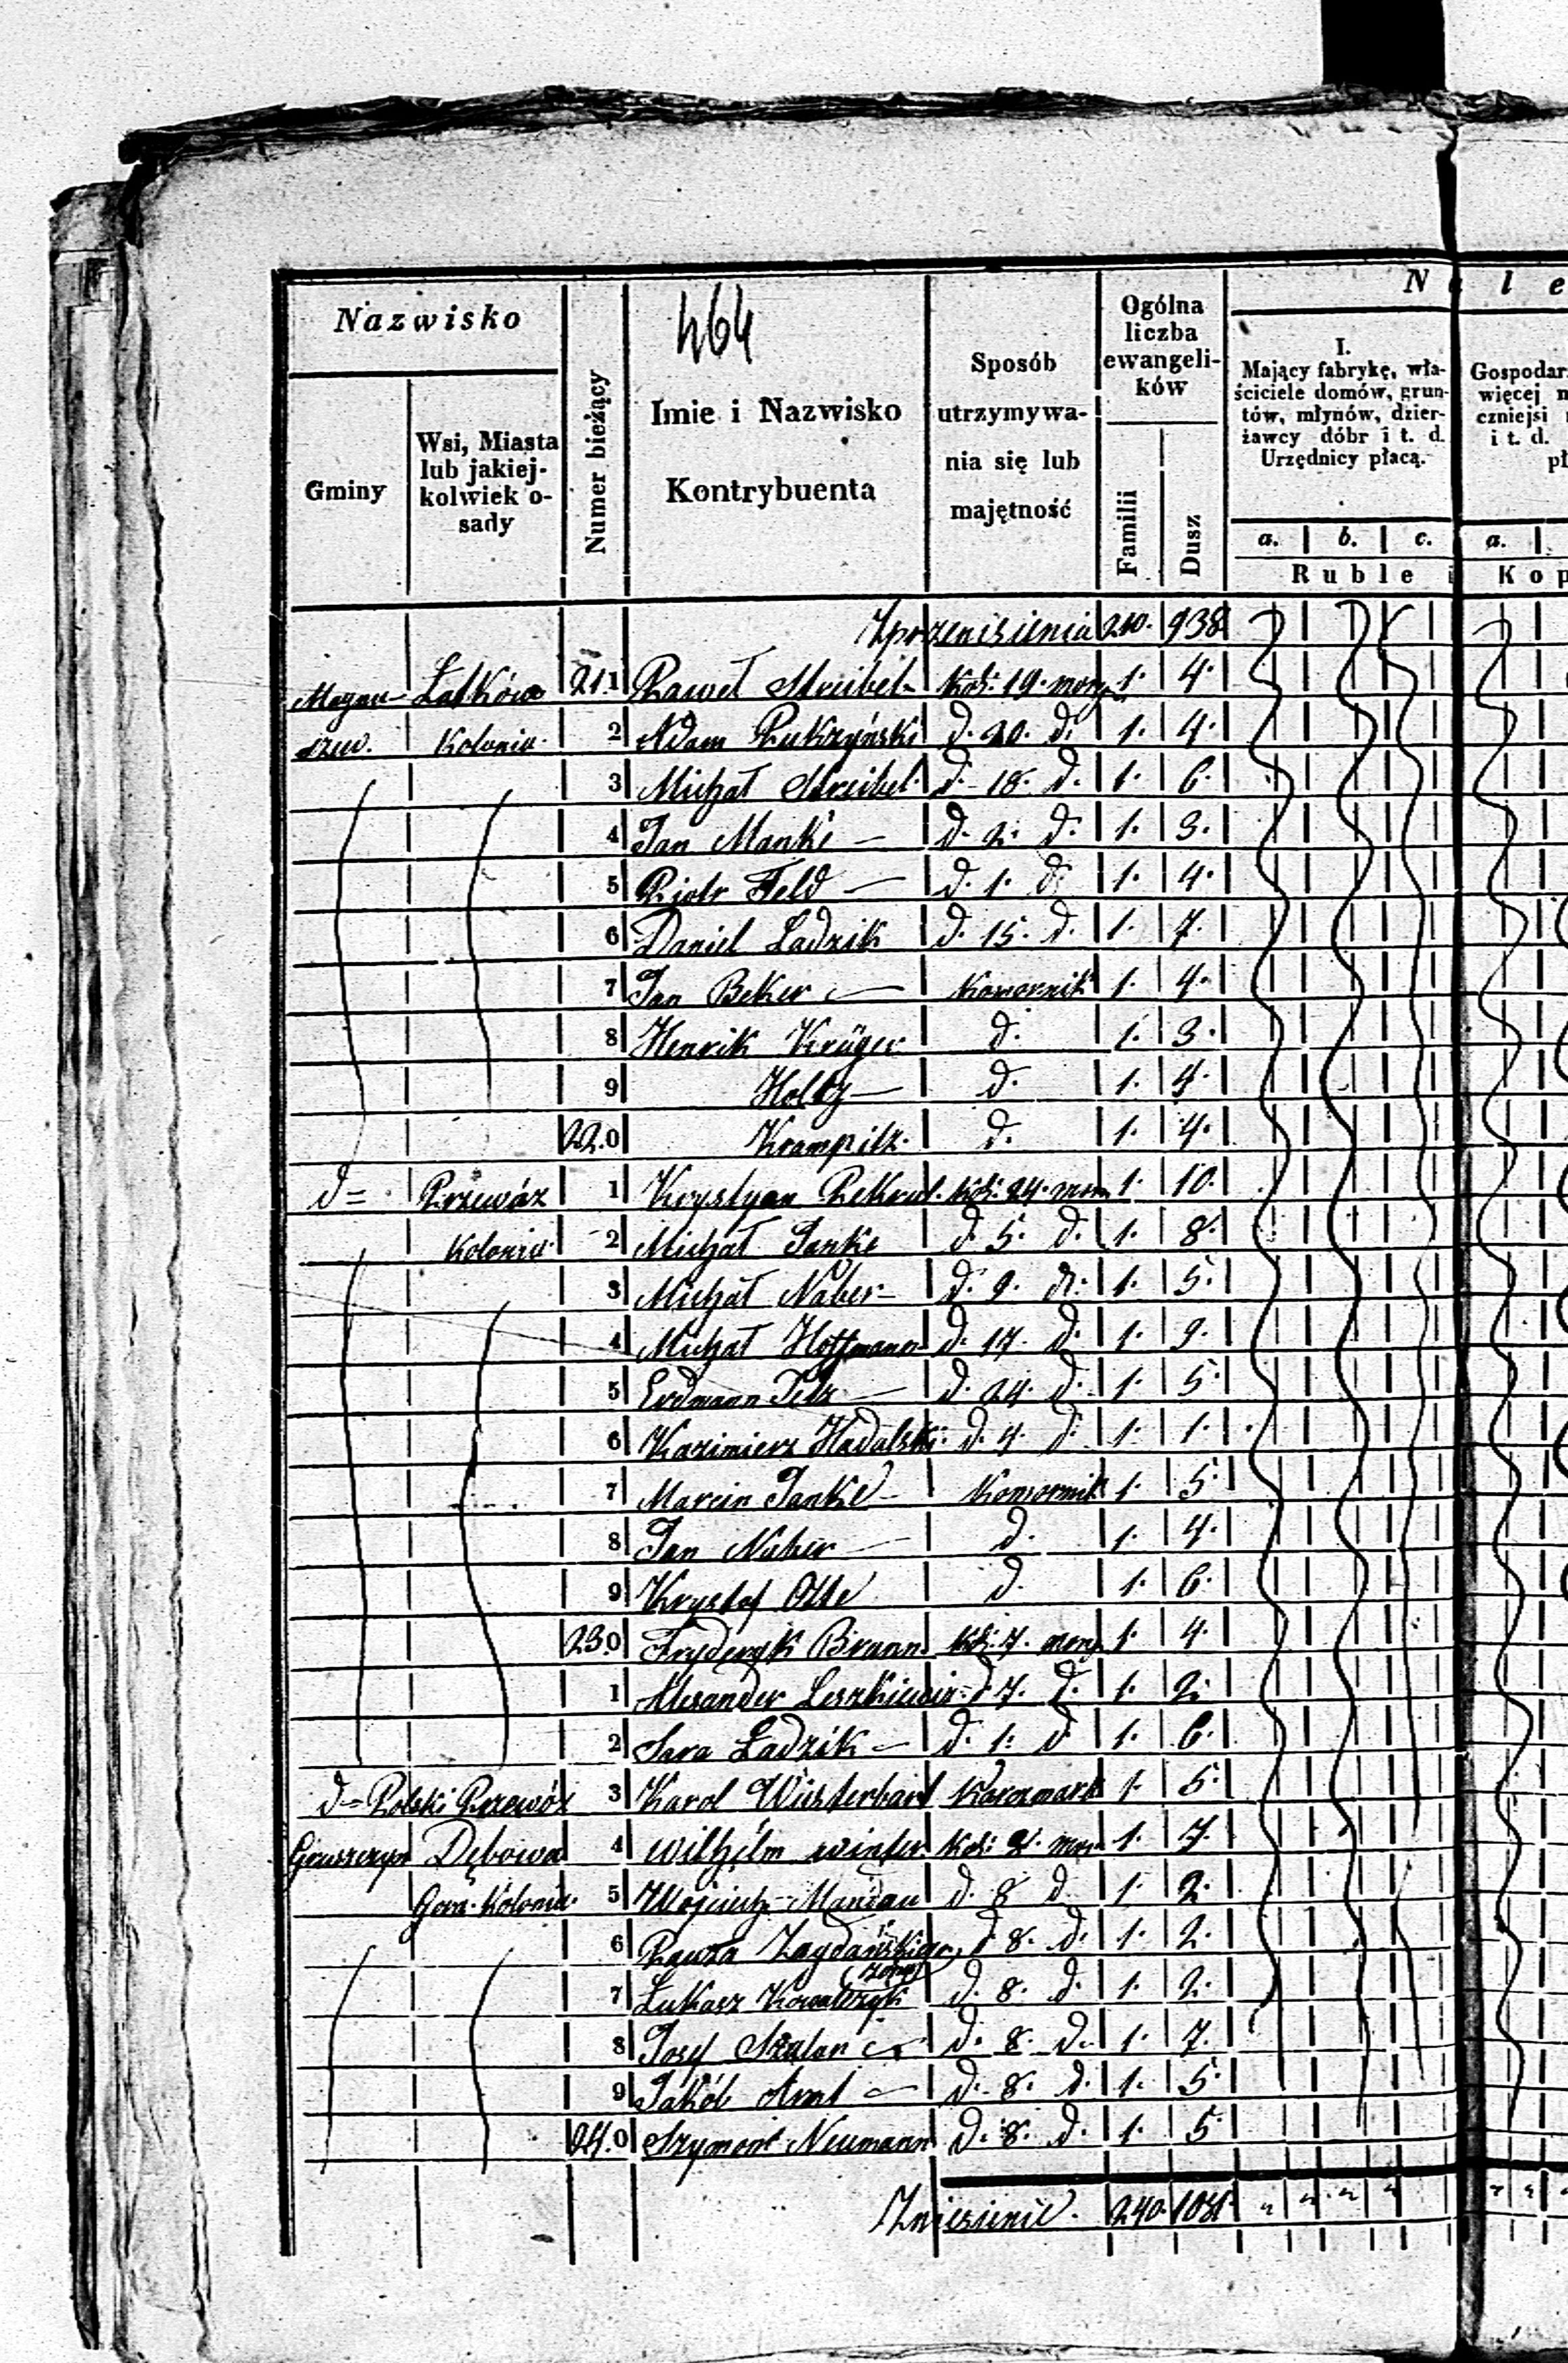 464
Nazwisko
Gminy
Wsi, Miasta lub jakiej-kolwiek o-sady
Numer bieżący
Imie i Nazwisko Kontrybuenta
Sposób utrzymywa-nia się lub majętność
Ogólna liczba ewangeli-ków
Familii
Dusz
N a l e
I.
Mający fabrykę, wła-
ściciele domów, grun-
tów, młynów, dzier-
żawcy dóbr i t. d.
Urzędnicy płacą.
Gospodar
więcej
czniejsi
i t. d.
a. b. c. a.
Ruble Kop
Zprzeniesienia 210. 938
Magnu- Latków 21.1 Paweł Streibel Kol: 19. morg 1. 4.
szew. Kolonia 2 Adam d. 20. d. 1. 4.
3 Michał Streibel d. 18. d. 1. 6.
4 Jan Manke d. 2. d. 1. 3.
5 Piotr Feld d. 1. d. 1. 4.
6 Daniel Ladzik d. 15. d. 1. 7.
7 Jan Beker Komornik 1. 4.
8 Henrik Krüger d. 1. 3.
9 Holtz d. 1. 4.
22.0 Krampitz d. 1. 4.
d = Przewóz 1 Krystyan Kol: 24. mor 1. 10.
Kolonia 2 Michał Janke d. 5. d. 1. 8.
3 Michał Naber d. 9. d. 1. 5.
4 Michał Hoffmann d. 17. d. 1. 9.
5 Erdmann d. 24. d. 1. 5.
6 Kazimierz Hadalski d. 4. d. 1. 1.
7 Marcin Janke Komornik 1. 5.
8 Jan Naber d. 1. 4.
9 Krystof Otte d. 1. 6.
23.0 Fryderyk Braun Kol: 7. morg 1. 4.
1 Alexander Leszkiewicz d. 7. d. 1. 2.
2 Sara Ladzik d. 1. d. 1. 6.
d = Polski Przewóz 3 Karol Wüsterbart Karczmarz 1. 5.
Gruszczyn Dębowa 4 Wilhelm Winter Kol: mor 1. 7.
Gora Kolonia 5 Wojciech Mandau d. 8 d. 1. 2.
6 d. 8. d. 1. 2.
7 Łukasz Kowalczyk d. 8. d. 1. 2.
8 Josef d. 8. d. 1. 7.
9 Jakób Arnt d. 8. d. 1. 5.
24.0 Szymon Neumann d. 8. d. 1. 5.
Zniesienie 240.